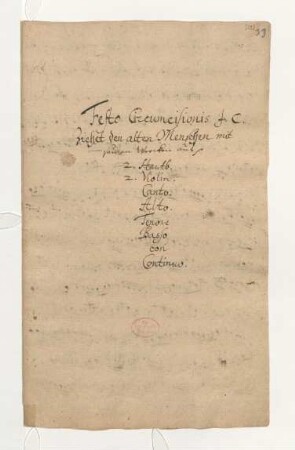 Festo Circumcisionis J. C.
Ziehet den alten Menschen mit
seinen Wercken aus
2. Hautb.
2. Violin.
Canto.
Alto.
Tenore
Basso
con
Continuo.